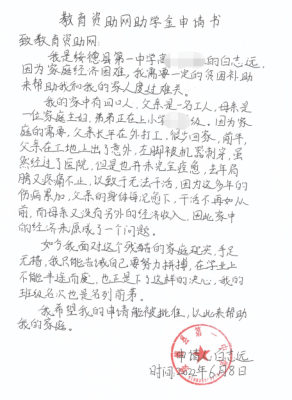 教育资助网助学金申请书
致教育资助网:
我是绥德县第一中学高 的白志远,
因为家庭经济困难,我需要一定的贫困补助
来帮助我和我的家人度过难关。
我的家中有四口人,父亲是一名工人,母亲是
一位家庭主妇,弟弟正在上小学 级。因为
家庭的需要,父亲长年在外打工,很少回家,前年,
父亲在工地上出了意外,左脚被机器刺穿,虽
然经过了医院,但是也并未完全痊愈,去年局
腾又疼痛不止,以致于无法干活,因为这多年的
伤病累加,父亲的身体每况愈下,干活不再如从
前,而母亲又没有另外的经济收入,因此家中
的经济来源成了一个问题。
如今我面对这个残酷的家庭现实,手足
无措,我只能告诫自己要努力拼搏,在学业上
不能半途而废,也正是下了这样的决心,我的
班级名次也是名列前茅。
我希望我的申请能被批准,以此来帮助
我的家庭。
申请人:白志远
时间2022年6月8日